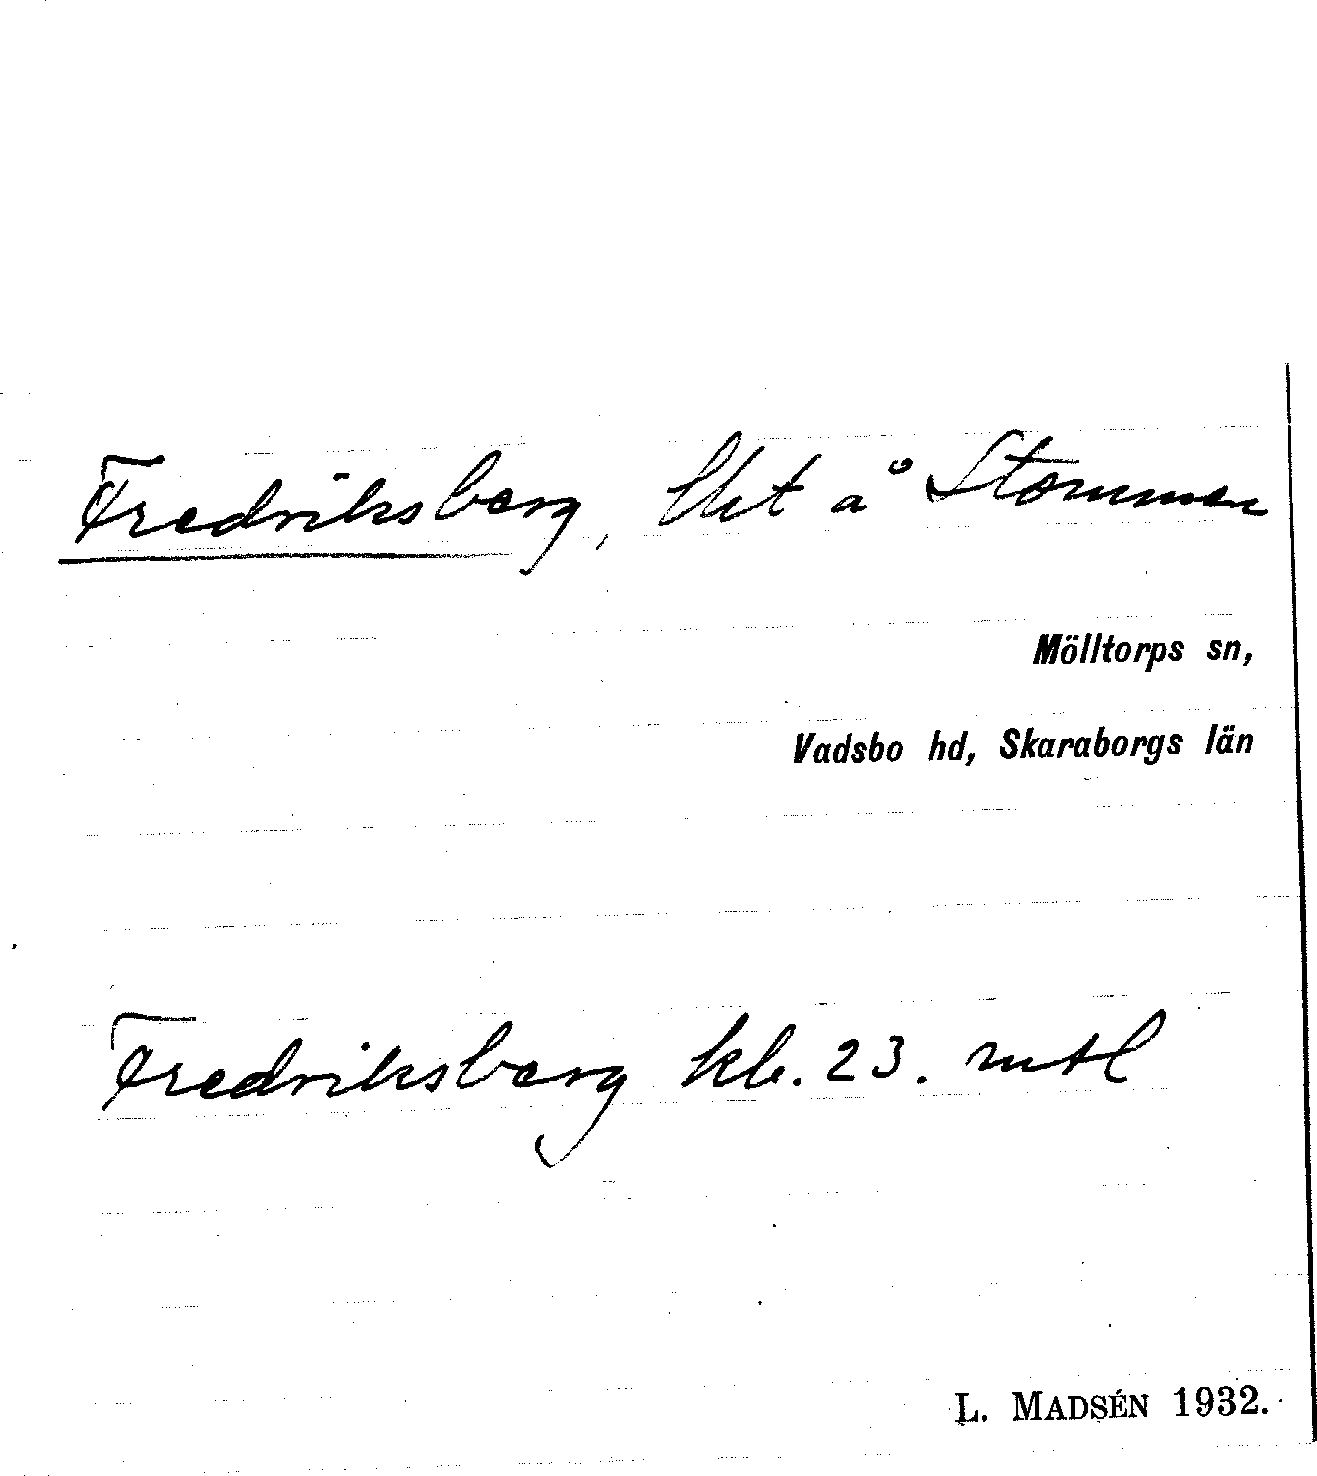 Fredriksberg, lht å Stommen
Mölltorps sn,
Vadsbo hd, Skaraborgs län
Fredriksberg kb. 23. mtl
L. MADSÉN 1932.